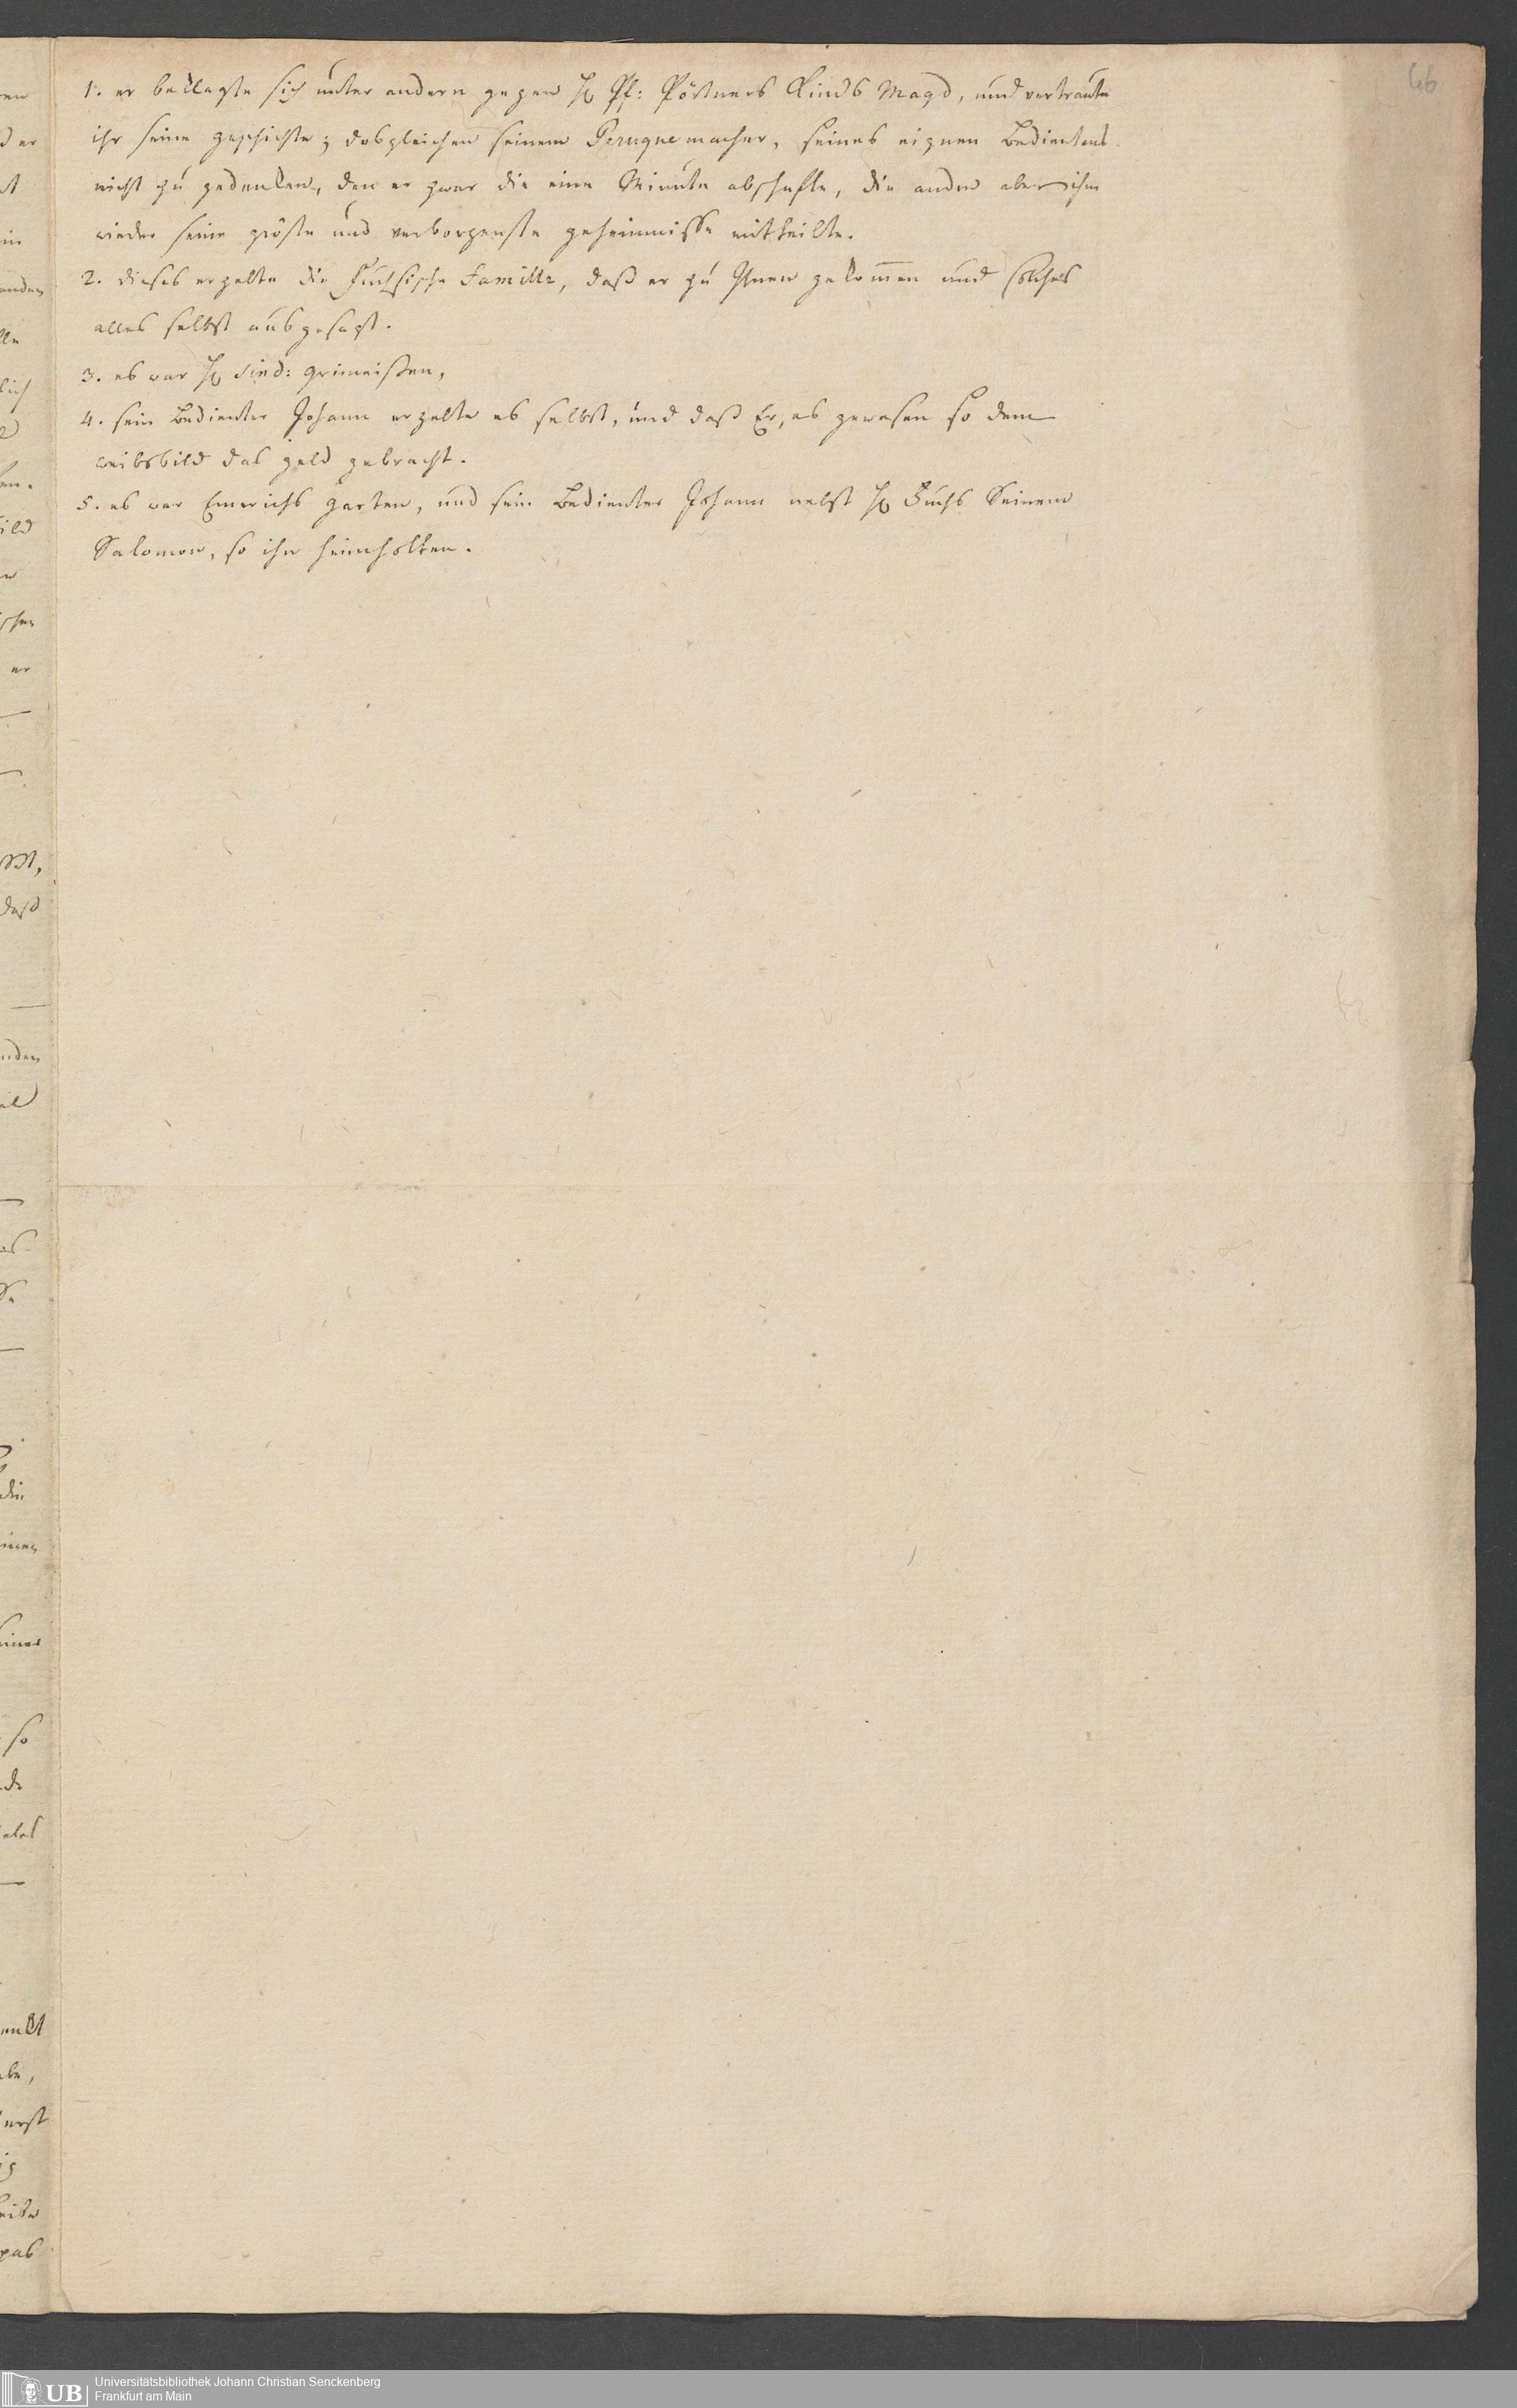 66
1. er beklagte sich unter andern gegen H. Pf: Pörtners Kinds Magd, und vertraute
ihr seine geschichte; desgleichen seinem Peruquemacher, seines eignen Bedientens
nicht zu gedenken, den er zwar die eine Minute abschafte, die andre aber ihm
wieder seine gröste und verborgenste geheimnisse mittheilte.
2. dieses erzelte die Fuchsische Famille, daß er zu Ihnen gekom̄en und solches
alles selbst ausgesagt.
3. es war H. Sind: grimeisen,
4. sein Bedienter Johann erzelte es selbst, und daß Er, es gewesen so dem
weibsbild das geld gebracht.
5. es war Emrichs garten, und sein Bedienter Johann nebst H. Fuchs Seinem
Salomon, so ihn heimholten.
UB
Universitätsbibliothek Johann Christian Senckenberg
Frankfurt am Main